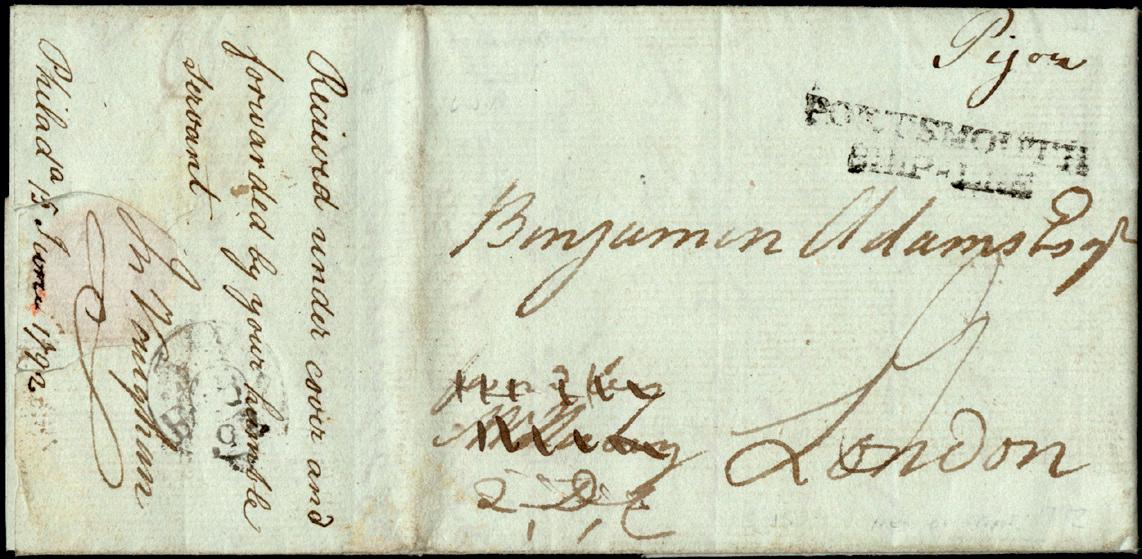 Pigou
PORTSMOUTH
SHIP-LRE
Benjamin Adams Esqr
London
Received under cover and
forwarded by your humble
servant
Jn Vaughan
Philada 15 June 1792